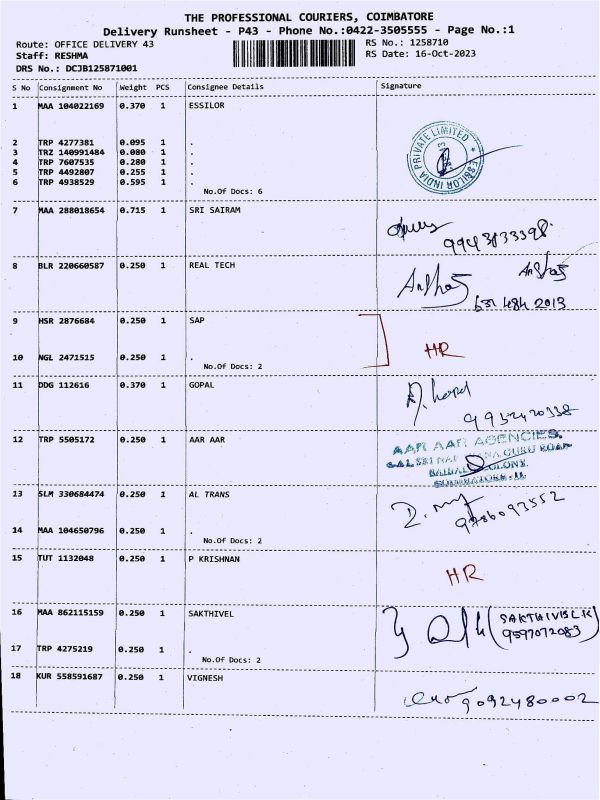 THE PROFESSIONAL COURIERS, COIMBATORE
Delivery Runsheet - P43 - Phone No.:0422-3505555 - Page No.:1
Route: OFFICE DELIVERY 43 RS No.: 1258710
Staff: RESHMA RS Date: 16-Oct-2023
DRS No.: DCJB125871001
S No Consignment No Weight PCS Consignee Details Signature
1 MAA 104022169 0.370 1 ESSILOR
ESSILOR INDIA PRIVATE LIMITED
2 TRP 4277381 0.095 1 .
3 TRZ 140991484 0.080 1 .
4 TRP 7607535 0.280 1 .
5 TRP 4492807 0.255 1 .
6 TRP 4938529 0.595 1 .
No.Of Docs: 6
7 MAA 288018654 0.715 1 SRI SAIRAM
8 BLR 220660587 0.250 1 REAL TECH
9 HSR 2876684 0.250 1 SAP
HR
10 NGL 2471515 0.250 1 .
No.Of Docs: 2
11 DDG 112616 0.370 1 GOPAL
12 TRP 5505172 0.250 1 AAR AAR
AAR AAR AGENCIES.
13 SLM 330684474 0.250 1 AL TRANS
9786093552
14 MAA 104650796 0.250 1 .
No.Of Docs: 2
15 TUT 1132048 0.250 1 P KRISHNAN
HR
16 MAA 862115159 0.250 1 SAKTHIVEL
9597072083
17 TRP 4275219 0.250 1 .
No.Of Docs: 2
18 KUR 558591687 0.250 1 VIGNESH
9092480002